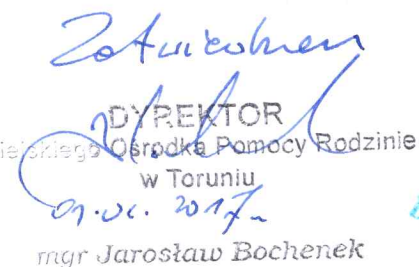 Zatwierdzam
DYREKTOR
Miejskiego Ośrodka Pomocy Rodzinie
w Toruniu
2017
mgr Jarosław Bochenek